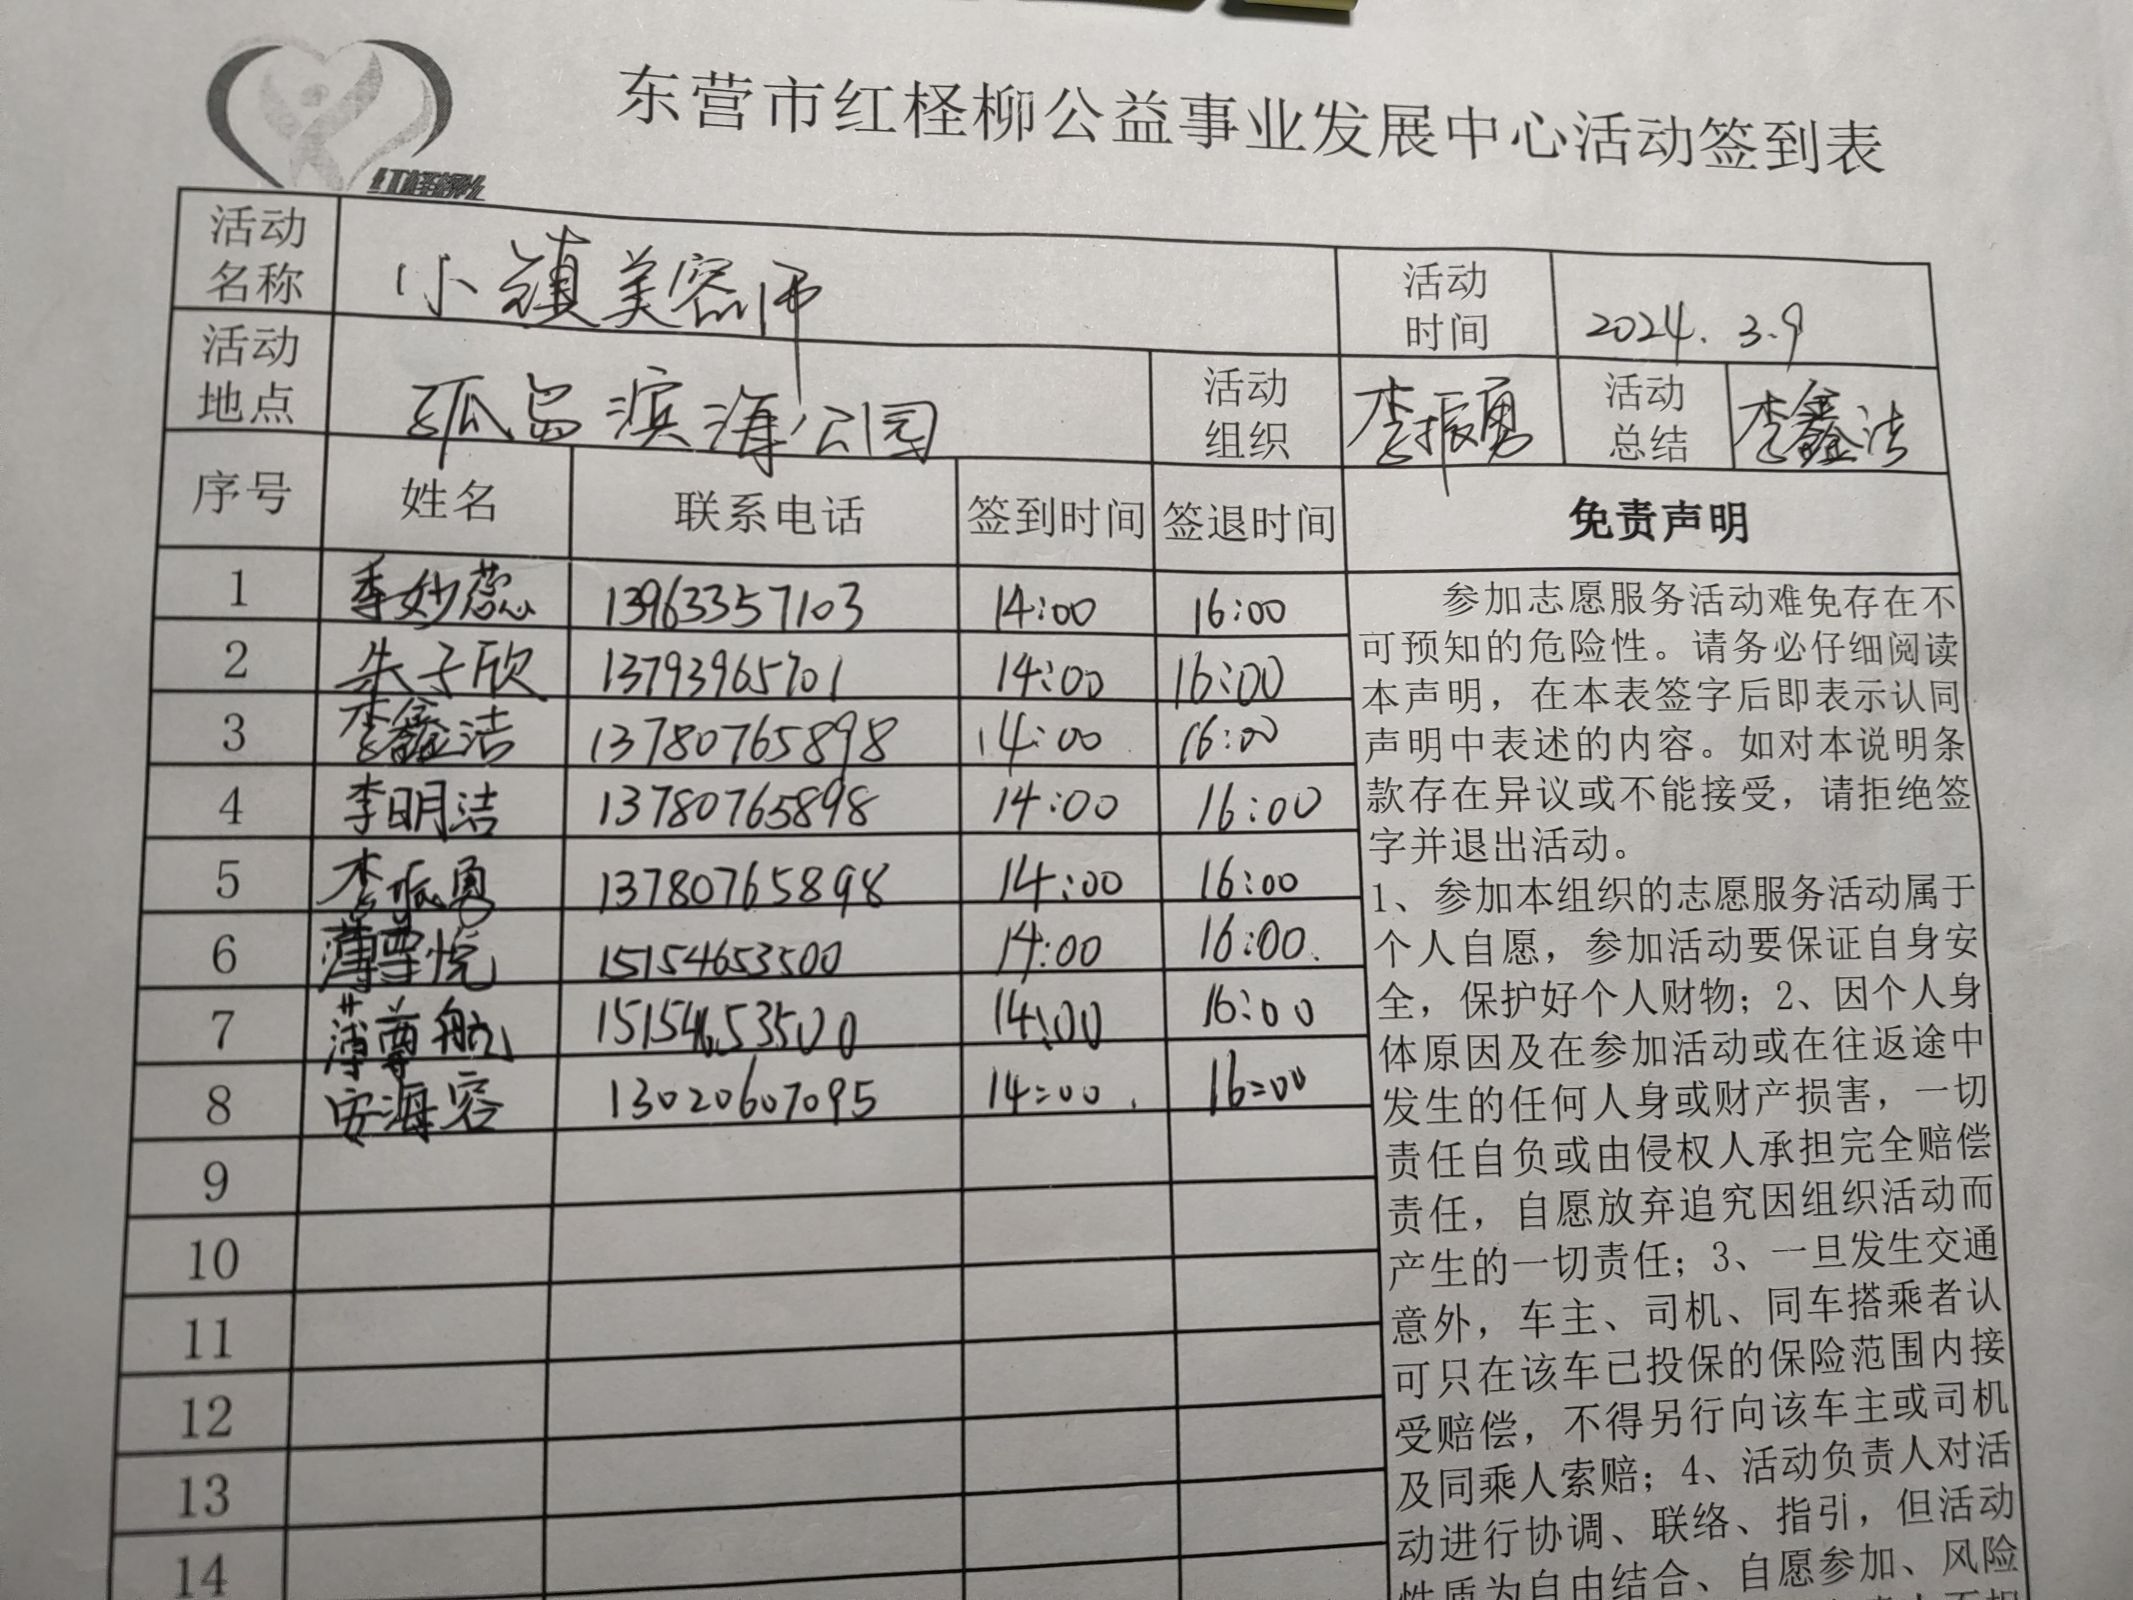 东营市红柽柳公益事业发展中心活动签到表
红柽柳
活动名称 小镇美容师 活动时间 2024.3.9
活动地点 孤岛滨海公园 活动组织 李振勇 活动总结 李鑫洁
序号 姓名 联系电话 签到时间 签退时间 免责声明
1 季妙蕊 13963357103 14:00 16:00
2 朱子欣 13793965701 14:00 16:00
3 李鑫洁 13780765898 14:00 16:00
4 李明洁 13780765898 14:00 16:00
5 李振勇 13780765898 14:00 16:00
6 15154653500 14:00 16:00.
7 薄尊航 15154653500 14:00 16:00
8 安海容 13020607095 14:00. 16:00
9
10
11
12
13
14
参加志愿服务活动难免存在不
可预知的危险性。请务必仔细阅读
本声明，在本表签字后即表示认同
声明中表述的内容。如对本说明条
款存在异议或不能接受，请拒绝签
字并退出活动。
1、参加本组织的志愿服务活动属于
个人自愿，参加活动要保证自身安
全，保护好个人财物；2、因个人身
体原因及在参加活动或在往返途中
发生的任何人身或财产损害，一切
责任自负或由侵权人承担完全赔偿
责任，自愿放弃追究因组织活动而
产生的一切责任；3、一旦发生交通
意外，车主、司机、同车搭乘者认
可只在该车已投保的保险范围内接
受赔偿，不得另行向该车主或司机
及同乘人索赔；4、活动负责人对活
动进行协调、联络、指引，但活动
性质为自由结合、自愿参加、风险